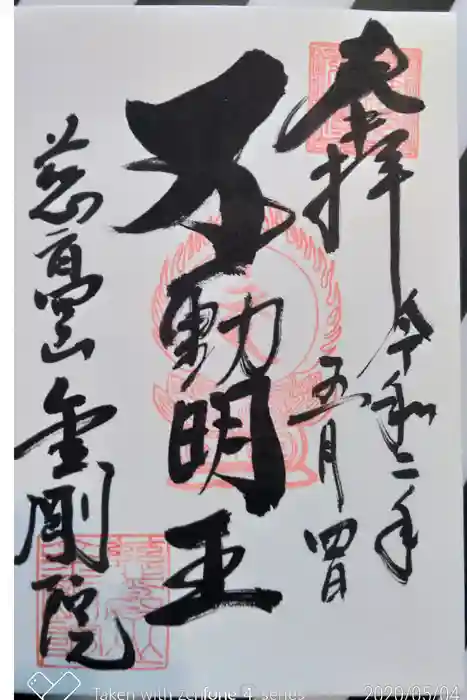 奉拝
令和二年
五月四日
不動明王
慈高山金剛院
Taken with Zenfone 4 series
2020/05/04